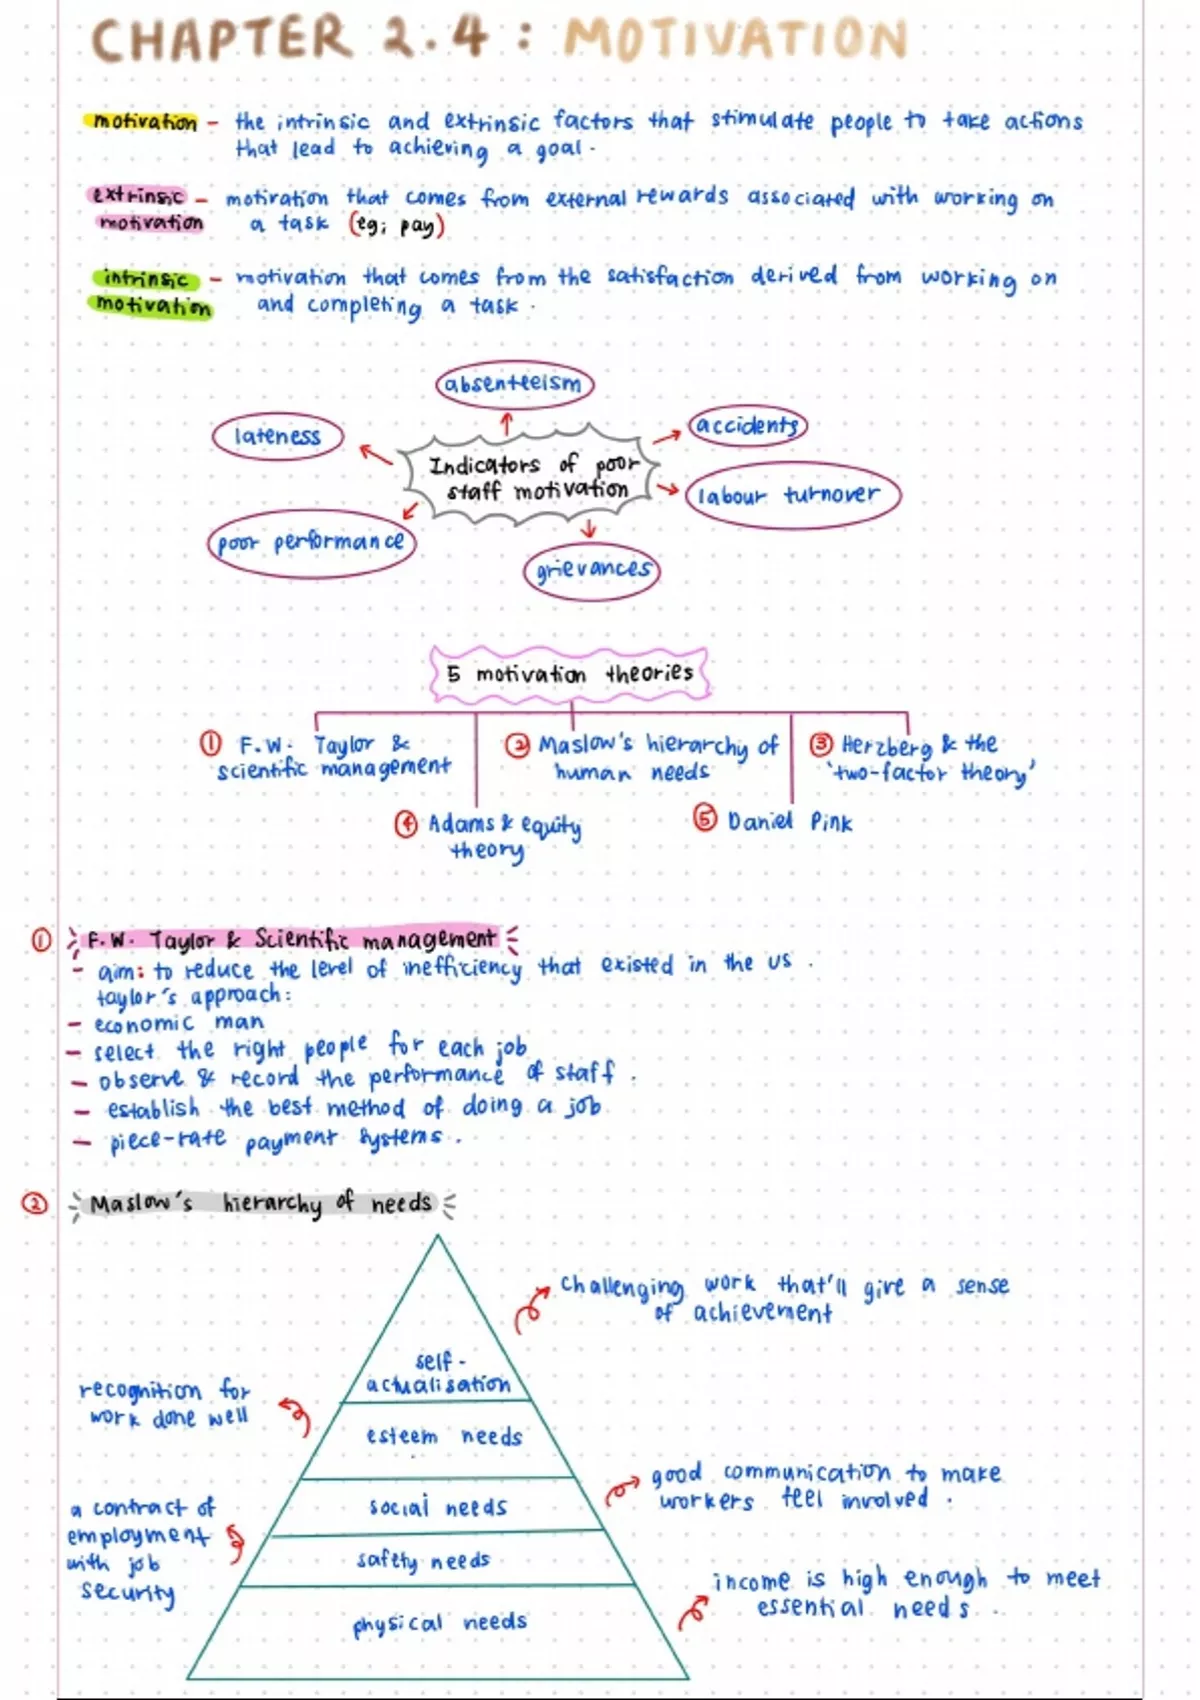 CHAPTER 2.4 : MOTIVATION
motivation - the intrinsic and extrinsic factors that stimulate people to take actions
that lead to achieving a goal.
extrinsic - motivation that comes from external rewards associated with working on
motivation a task (eg; pay)
intrinsic - motivation that comes from the satisfaction derived from working on
motivation and completing a task.
absenteeism
lateness
accidents
Indicators of poor
staff motivation
labour turnover
poor performance
grievances
5 motivation theories
① F.W. Taylor &
scientific management
② Maslow's hierarchy of
human needs
③ Herzberg & the
'two-factor theory'
④ Adams & equity
theory
⑤ Daniel Pink
① F.W. Taylor & Scientific management
- aim: to reduce the level of inefficiency that existed in the US.
taylor's approach:
- economic man
- select the right people for each job
- observe & record the performance of staff.
- establish the best method of doing a job
- piece-rate payment systems.
② Maslow's hierarchy of needs
challenging work that'll give a sense
of achievement
self-
actualisation
recognition for
work done well
esteem needs
good communication to make
workers feel involved.
social needs
a contract of
employment
with job
security
safety needs
income is high enough to meet
essential needs.
physical needs